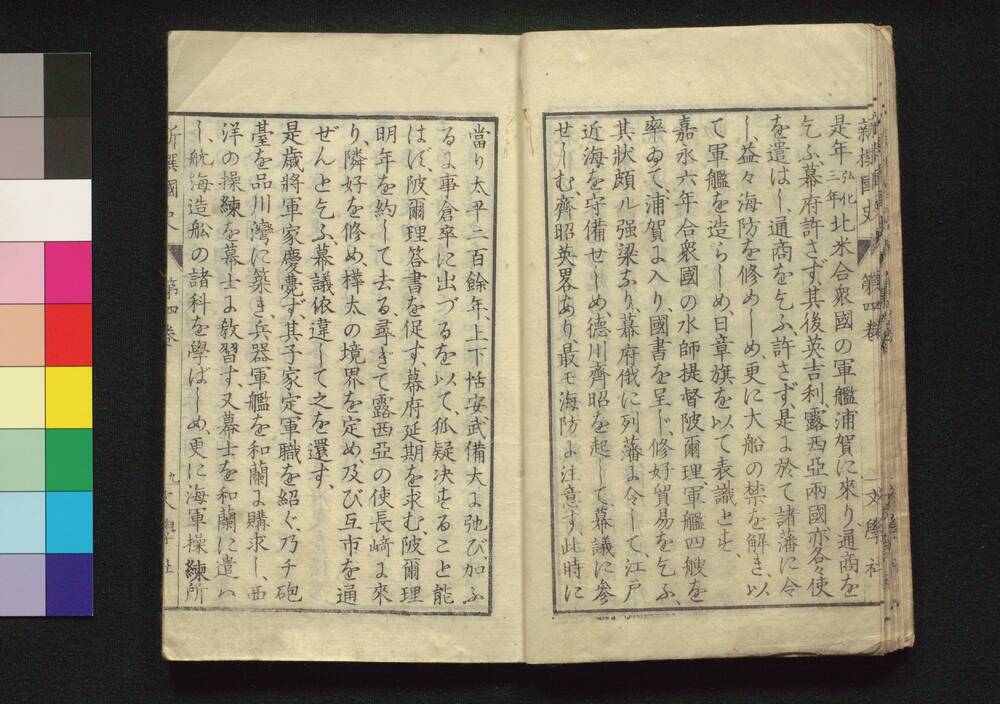 新撰國史 第四卷 文學社
是年弘化三年北米合衆國の軍艦浦賀に來り、通商を
乞ふ、幕府許さず、其後英吉利、露西亞兩國亦各々使
を遣はし通商を乞ふ、許さず、是に於て諸藩に令
し、益々海防を修めしめ、更に大船の禁を解き、以
て軍艦を造らしめ、日章旗を以て表識とす、
嘉永六年、合衆國の水師提督陂爾理、軍艦四艘を
率ゐて、浦賀に入り、國書を呈し、修好貿易を乞ふ、
其狀頗ル强梁なり、幕府俄に列藩に令して、江戸
近海を守備せしめ、德川齊昭を起して、幕議に參
せしむ、齊昭英畧あり、最モ海防に注意す、此時に
當り太平二百餘年、上下恬安武備大に弛び、加ふ
るに事倉卒に出づるを以て、狐疑決することと能
はず、陂爾理答書を促す、幕府延期を求む、陂爾理
明年を約して去る、尋ぎて露西亞の使長﨑に來
り、隣好を修め、樺太の境界を定め、及び互市を通
ぜんと乞ふ、幕議依違して之を還す、
是歲將軍家慶薨ず、其子家定軍職を紹ぐ、乃チ砲
臺を品川灣に築き、兵器軍艦を和蘭に購求し、西
洋の操練を幕士に敎習す、又幕士を和蘭に遣は
し、航海造舩の諸科を學ばしめ、更に海軍操練所
新撰國史 第四卷 九 文學社